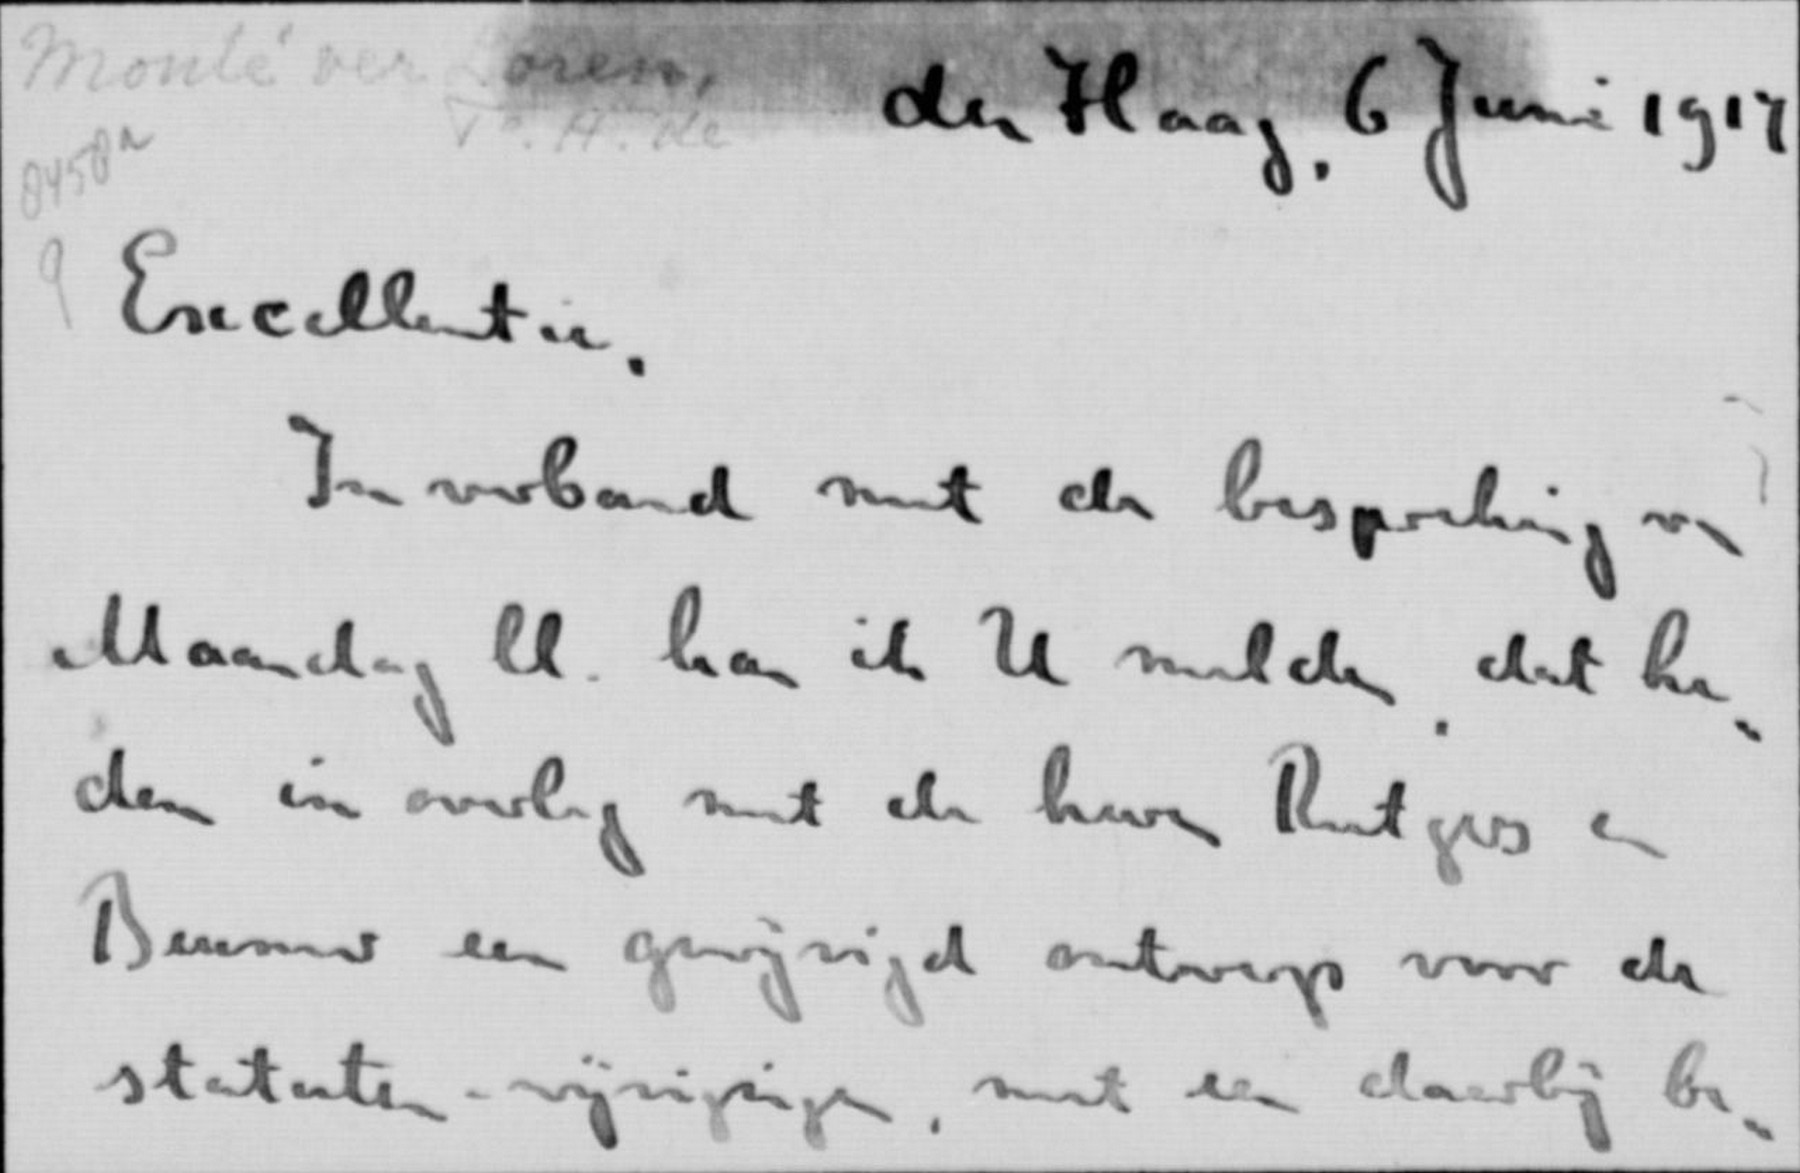 Monté ver Loren,
Jr. H. de
den Haag, 6 Juni 1917
8458a
Excellentie,
In verband met de bespreking van
Maandag ll. kan ik U melden, dat he-
den in overleg met de heeren Rutgers en
Beumer een gewijzigd ontwerp voor de
statuten-wijzigingen, met een daarbij be-